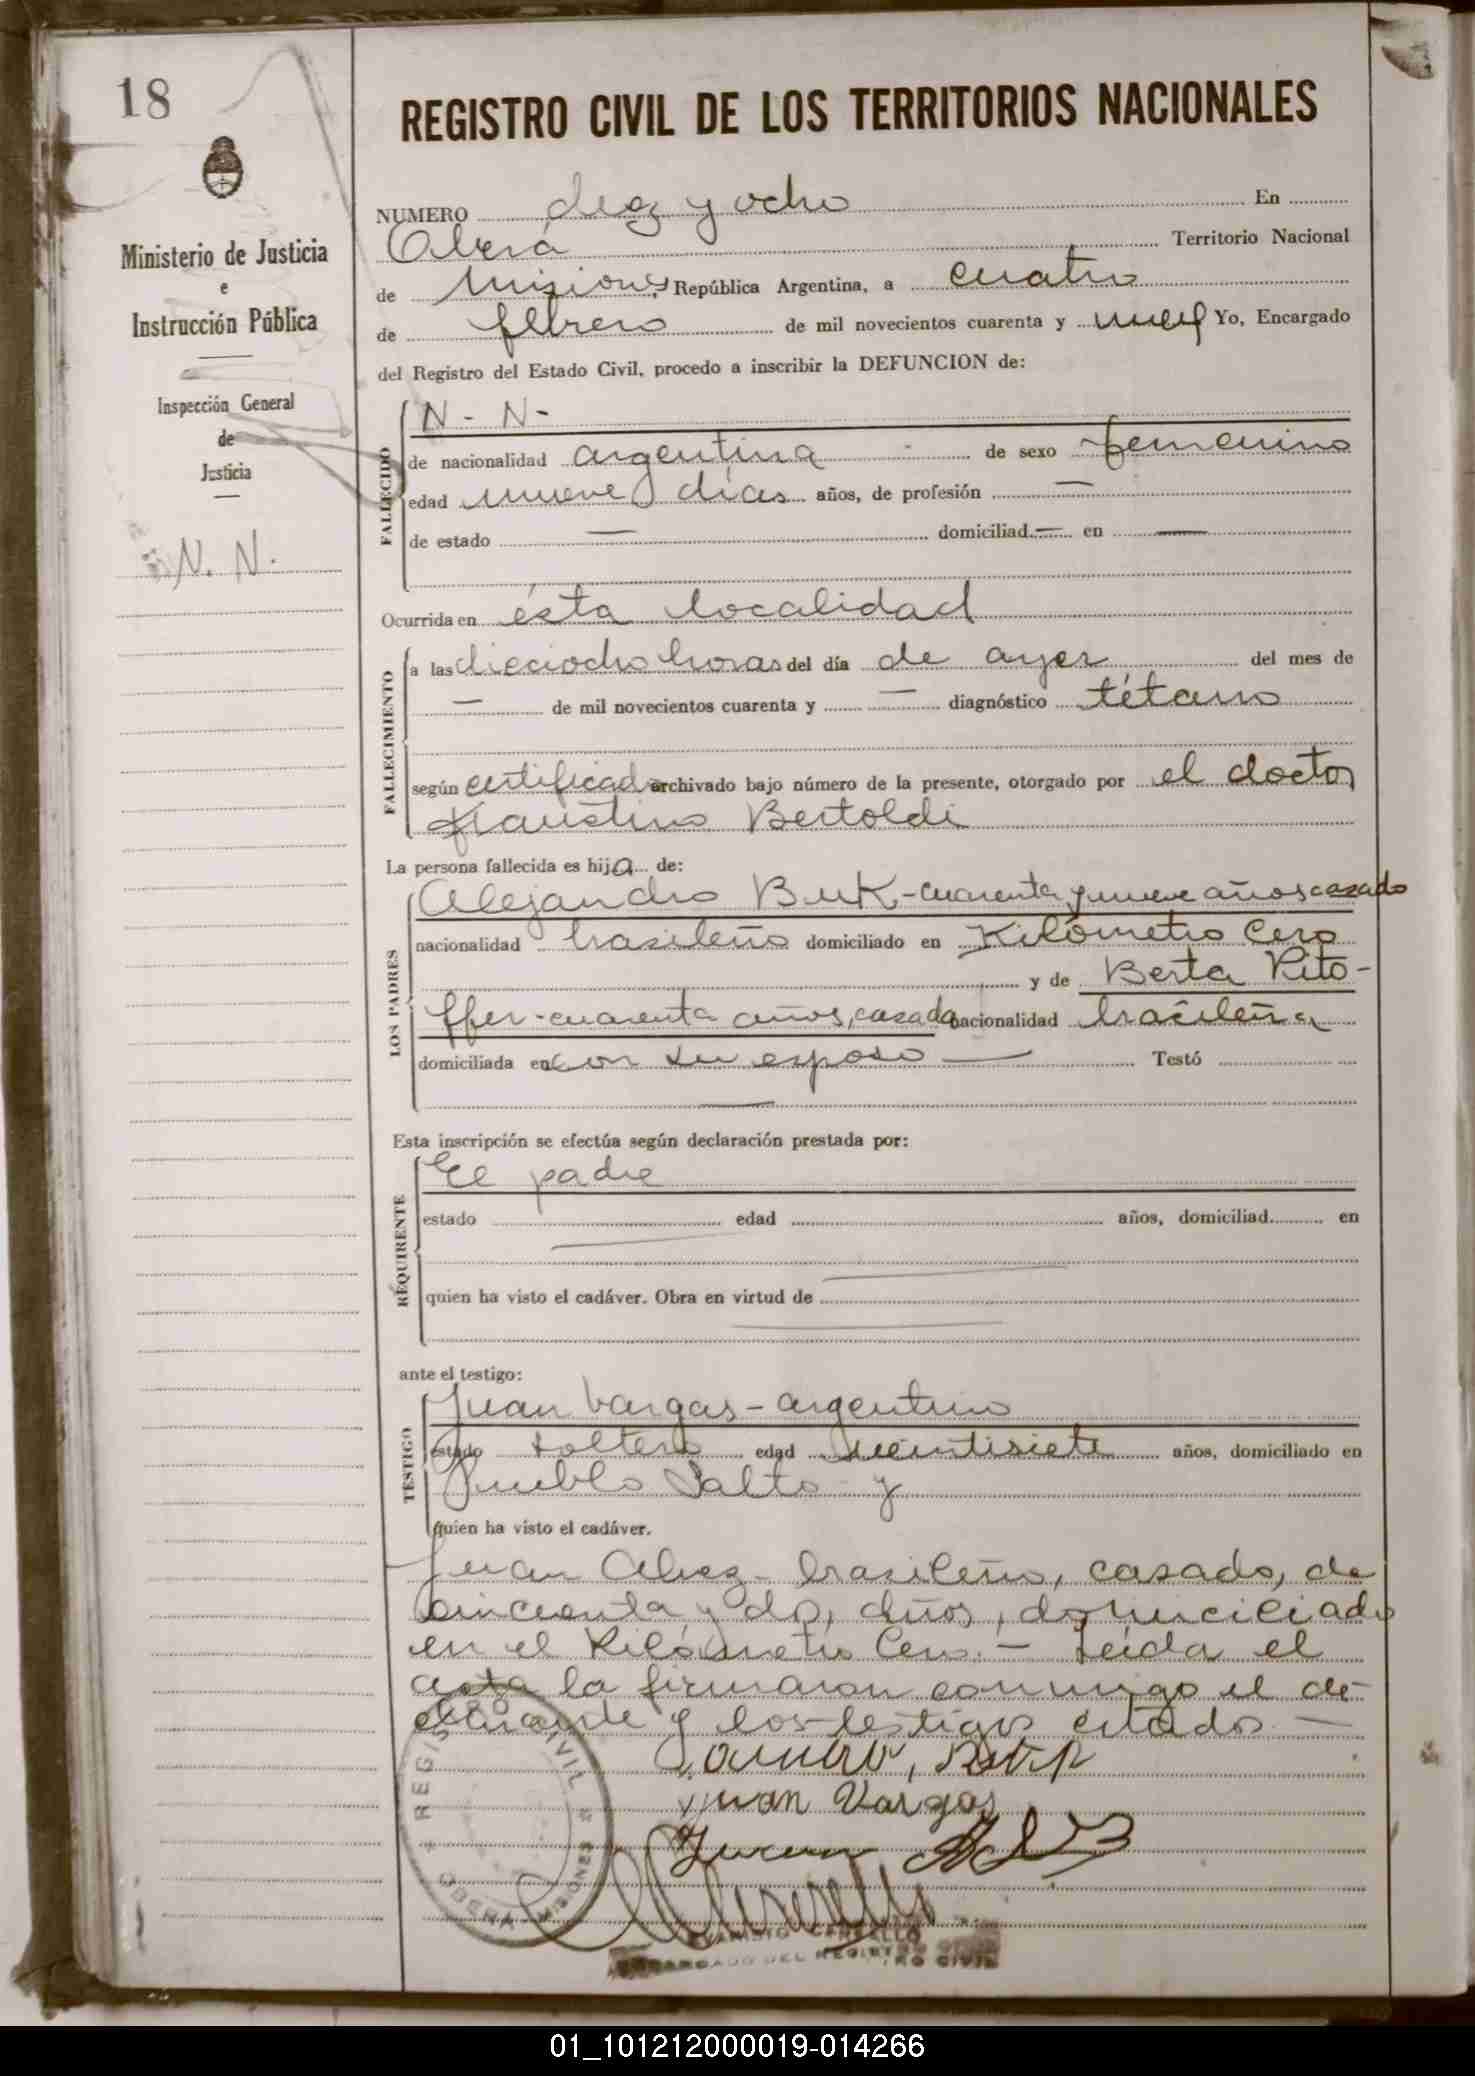 18
Ministerio de Justicia
e
Instrucción Pública
Inspección General
de
Justicia
N. N.
REGISTRO CIVIL DE LOS TERRITORIOS NACIONALES
NUMERO diez y ocho En
Oberá Territorio Nacional
de Misiones, República Argentina, a cuatro
de febrero de mil novecientos cuarenta y Yo, Encargado
del Registro del Estado Civil, procedo a inscribir la DEFUNCION de:
FALLECIDO
N - N -
de nacionalidad argentina de sexo femenino
edad nueve días años, de profesión —
de estado — domiciliad — en —
Ocurrida en ésta localidad
FALLECIMIENTO
a las dieciocho horas del día de ayer del mes de
— de mil novecientos cuarenta y — diagnóstico tétano
según certificado archivado bajo número de la presente, otorgado por el doctor
Faustino Bertoldi
La persona fallecida es hija de:
LOS PADRES
Alejandro Buk - cuarenta y nueve años casado
nacionalidad brasileño domiciliado en Kilómetro Cero
y de Berta Rito-
ffer - cuarenta años, casada nacionalidad brasileña
domiciliada en con su esposo — Testó
—
Esta inscripción se efectúa según declaración prestada por:
REQUIRENTE
El padre
estado edad años, domiciliad en
quien ha visto el cadáver. Obra en virtud de
ante el testigo:
TESTIGO
Juan Vargas - argentino
estado soltero edad veintisiete años, domiciliado en
Pueblo Salto y
quien ha visto el cadáver.
Juan - brasileño, casado, de
cincuenta y dos años, domiciliado
en el Kilómetro Cero. — Leída el
acta la firmaron conmigo el de-
clarante y los testigos citados —
Juan Vargas
Juan
REGISTRO CIVIL
OBERA MISIONES
ENCARGADO DEL REGISTRO CIVIL
01_101212000019-014266